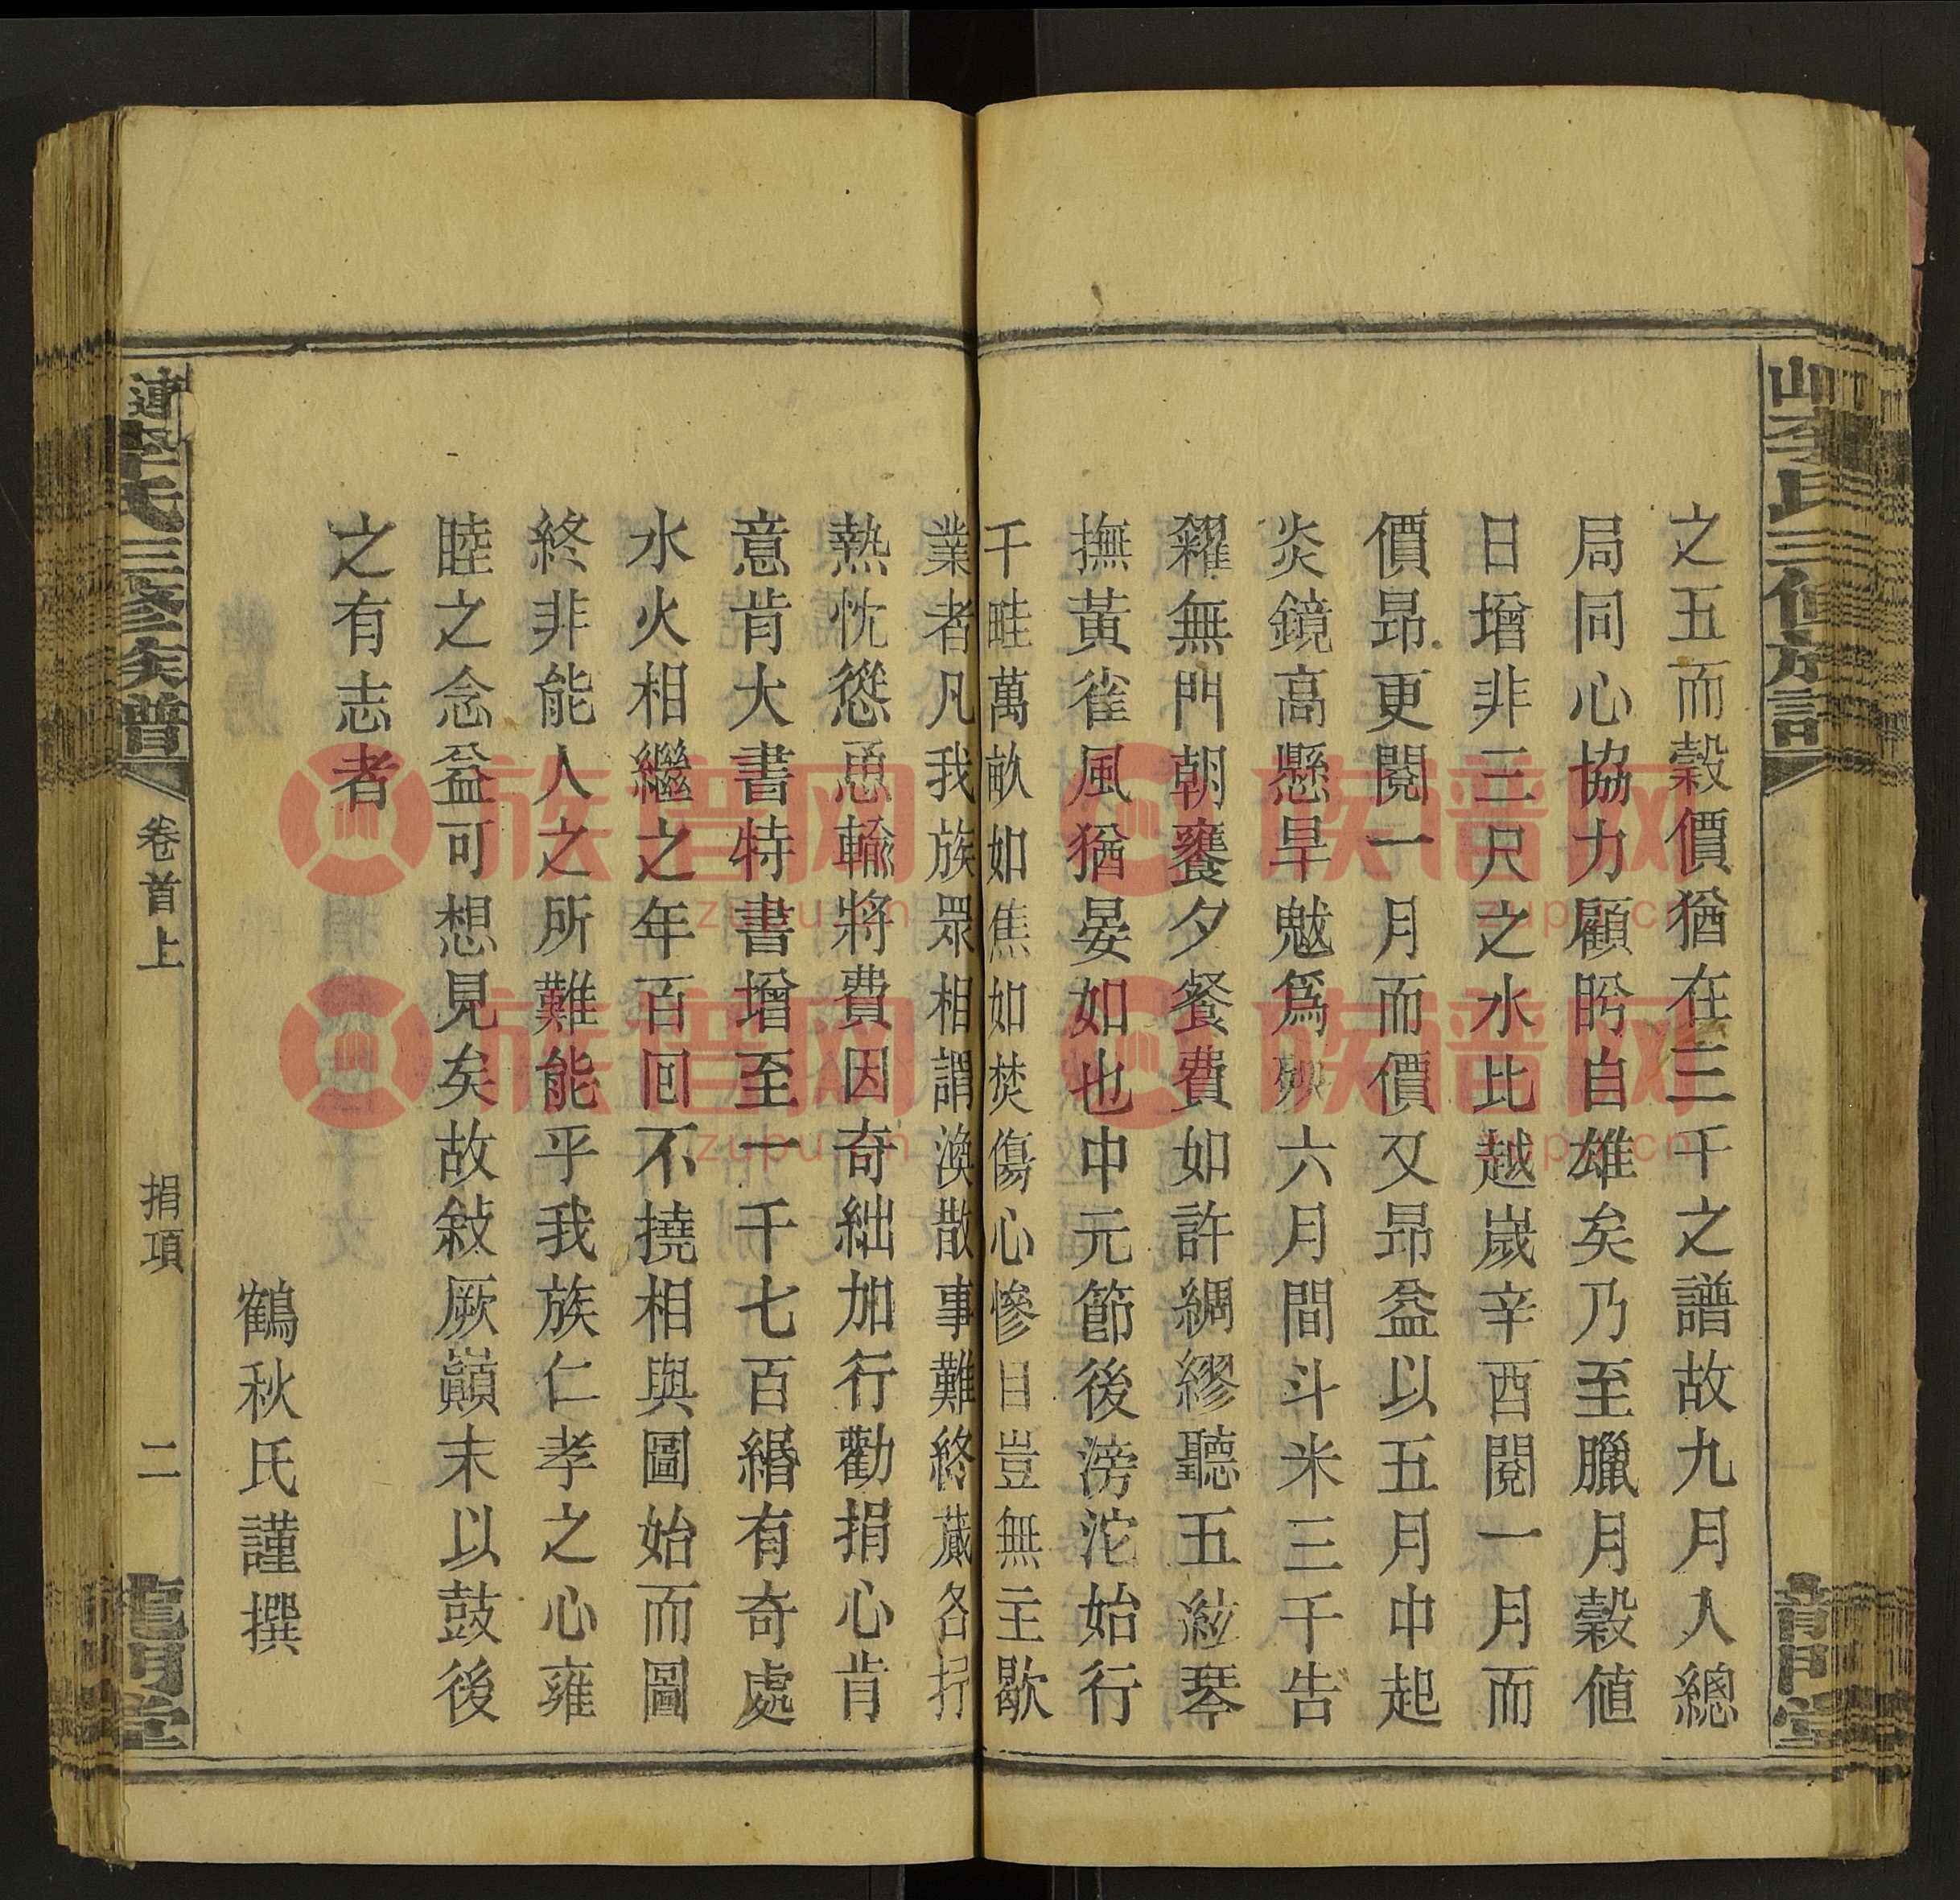 山李氏三修族譜
龍門堂
之五而穀價猶在三千之譜故九月入總
局同心協力顧盻自雄矣乃至臘月穀値
日增非三尺之水比越歲辛酉閱一月而
價昻更閱一月而價又昻益以五月中起
炎鏡高懸旱魃爲𣨼六月間斗米三千告
糴無門朝饔夕餐費如許綢繆聽五絃琴
撫黃雀風猶晏如也中元節後滂沱始行
千畦萬畝如焦如焚傷心慘目豈無主歇
業者凡我族眾相謂渙散事難終蕆各抒
熱忱慫恿輸將費因奇絀加行勸捐心肯
意肯大書特書增至一千七百緡有奇處
水火相繼之年百囘不撓相與圖始而圖
終非能人之所難能乎我族仁孝之心雍
睦之念益可想見矣故敍厥巔末以鼓後
之有志者
鶴秋氏謹撰
連
李氏三修族譜
卷首上
捐項
二
龍門堂
族譜网
zupu.cn
族譜网
zupu.cn
族譜网
zupu.cn
族譜网
zupu.cn